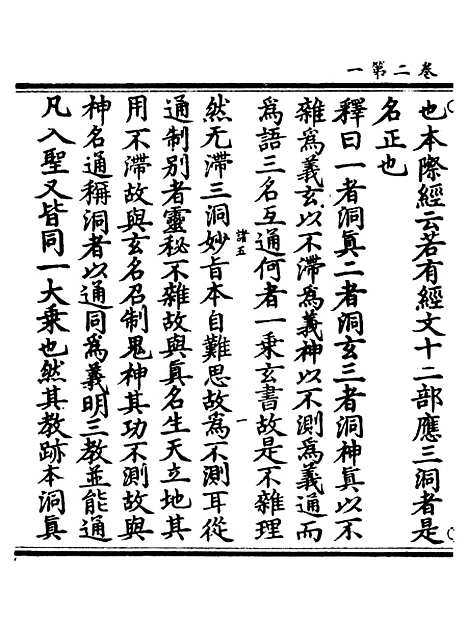 卷二第一
也本際經云若有經文十二部應三洞者是
名正也
釋曰一者洞真二者洞玄三者洞神真以不
雜為義玄以不滯為義神以不測為義通而
為語三名互通何者一乗玄書故是不雜理
諸五 一
然无滯三洞妙旨本自難思故為不測耳從
通制別者靈秘不雜故與真名生天立地其
用不滯故與玄名召制鬼神其功不測故與
神名通稱洞者以通同為義明三教並能通
凡入聖又皆同一大乗也然其教跡本洞真